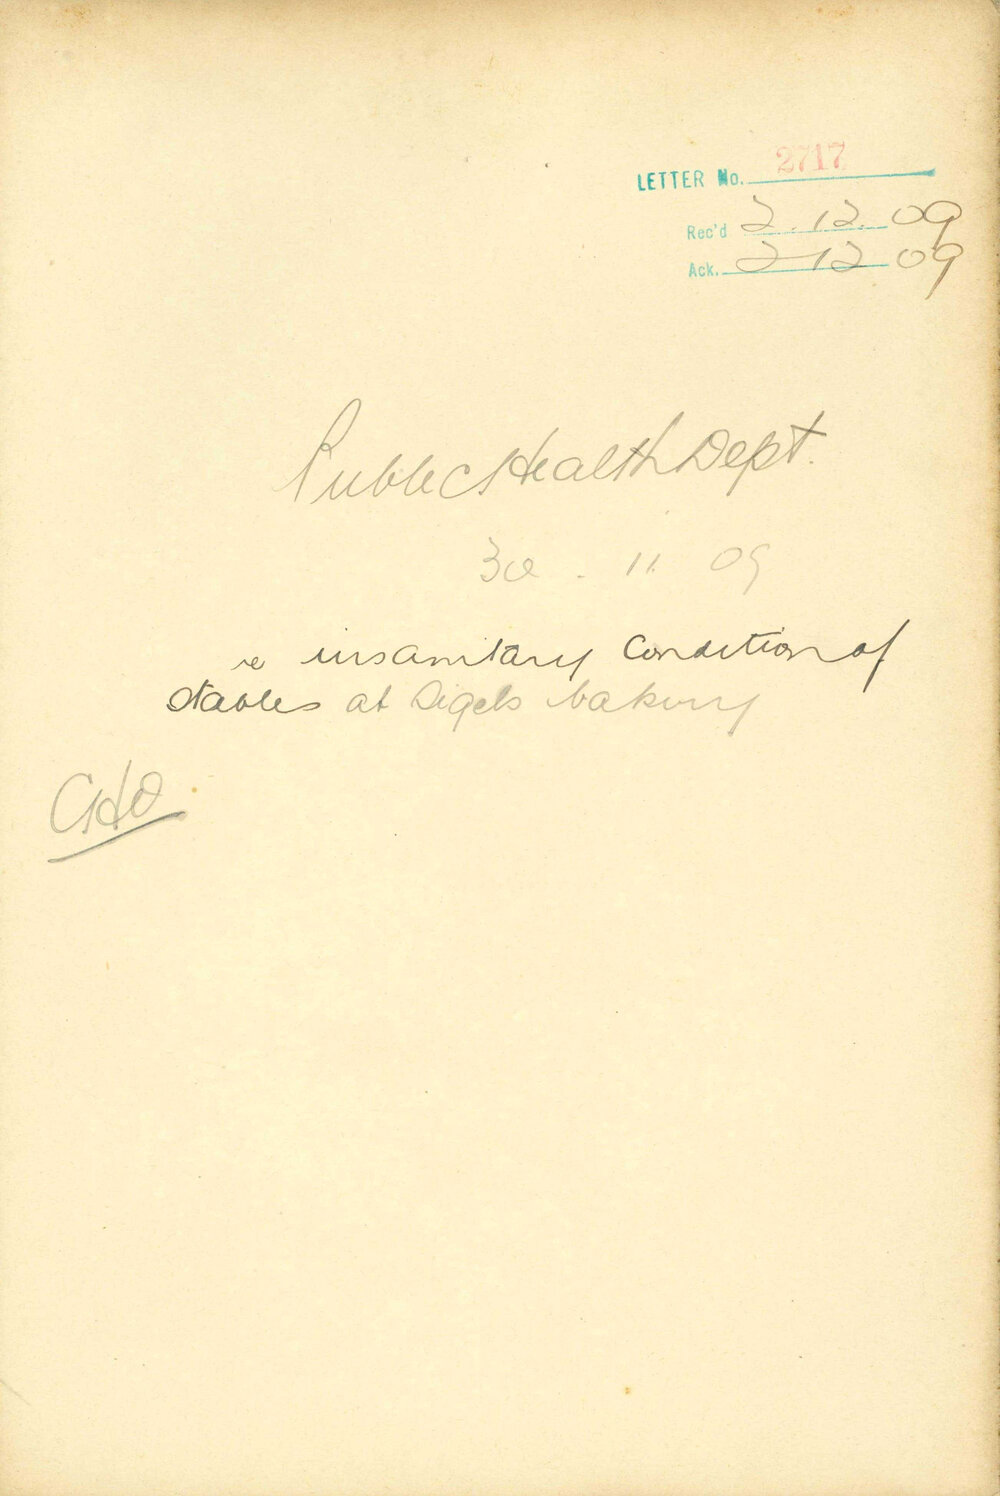 LETTER No. 2717
Rec'd 2.12.09
Ack. 2 12 09
Public Health Dept.
30.11.09
re insanitary Condition of
stables at Sigels bakery
CHO